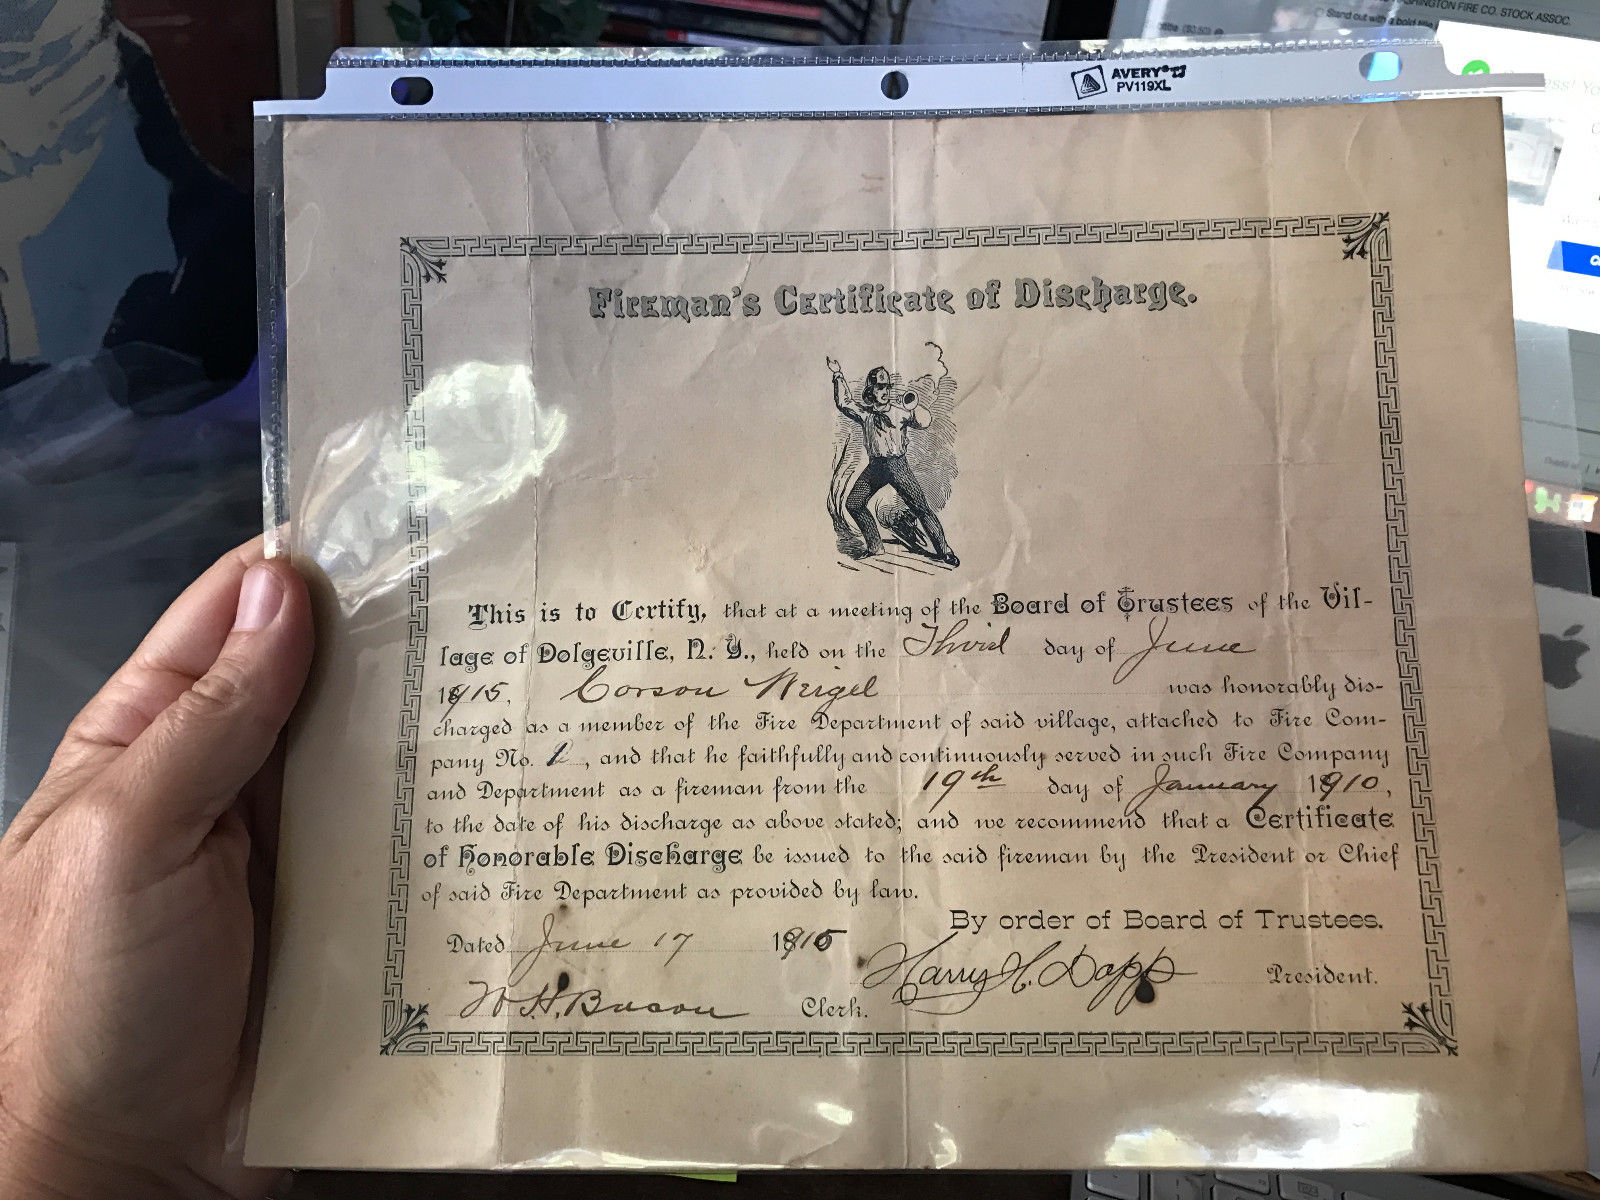 SHINGTON FIRE CO. STOCK ASSOC.
Stand out with a bold title
AVERY®
PV119XL
Fireman's Certificate of Discharge.
This is to Certify, that at a meeting of the Board of Trustees of the Vil-
lage of Dolgeville, N. Y., held on the Third day of June
1915, Corson Weigel was honorably dis-
charged as a member of the Fire Department of said village, attached to Fire Com-
pany No. , and that he faithfully and continuously served in such Fire Company
and Department as a fireman from the 19th day of January 1910,
to the date of his discharge as above stated; and we recommend that a Certificate
of Honorable Discharge be issued to the said fireman by the President or Chief
of said Fire Department as provided by law.
By order of Board of Trustees.
Dated June 17 1915
Harry H. Dapp President.
W. H. Bacon Clerk.